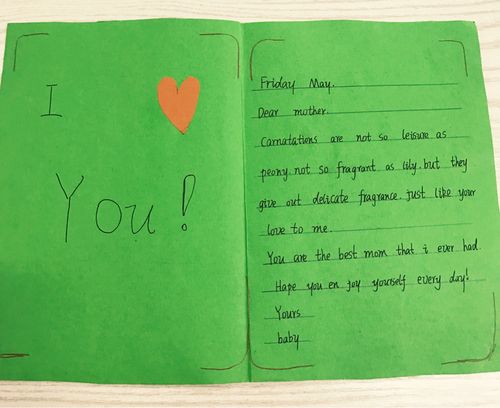 I
You!
Friday May.
Dear mother.
Carnatations are not so leisure as
peony. not so fragrant as lily. but they
give out delicate fragrance. just like your
love to me.
You are the best mom that i ever had
Hape you en joy youself every day!
Yours
baby